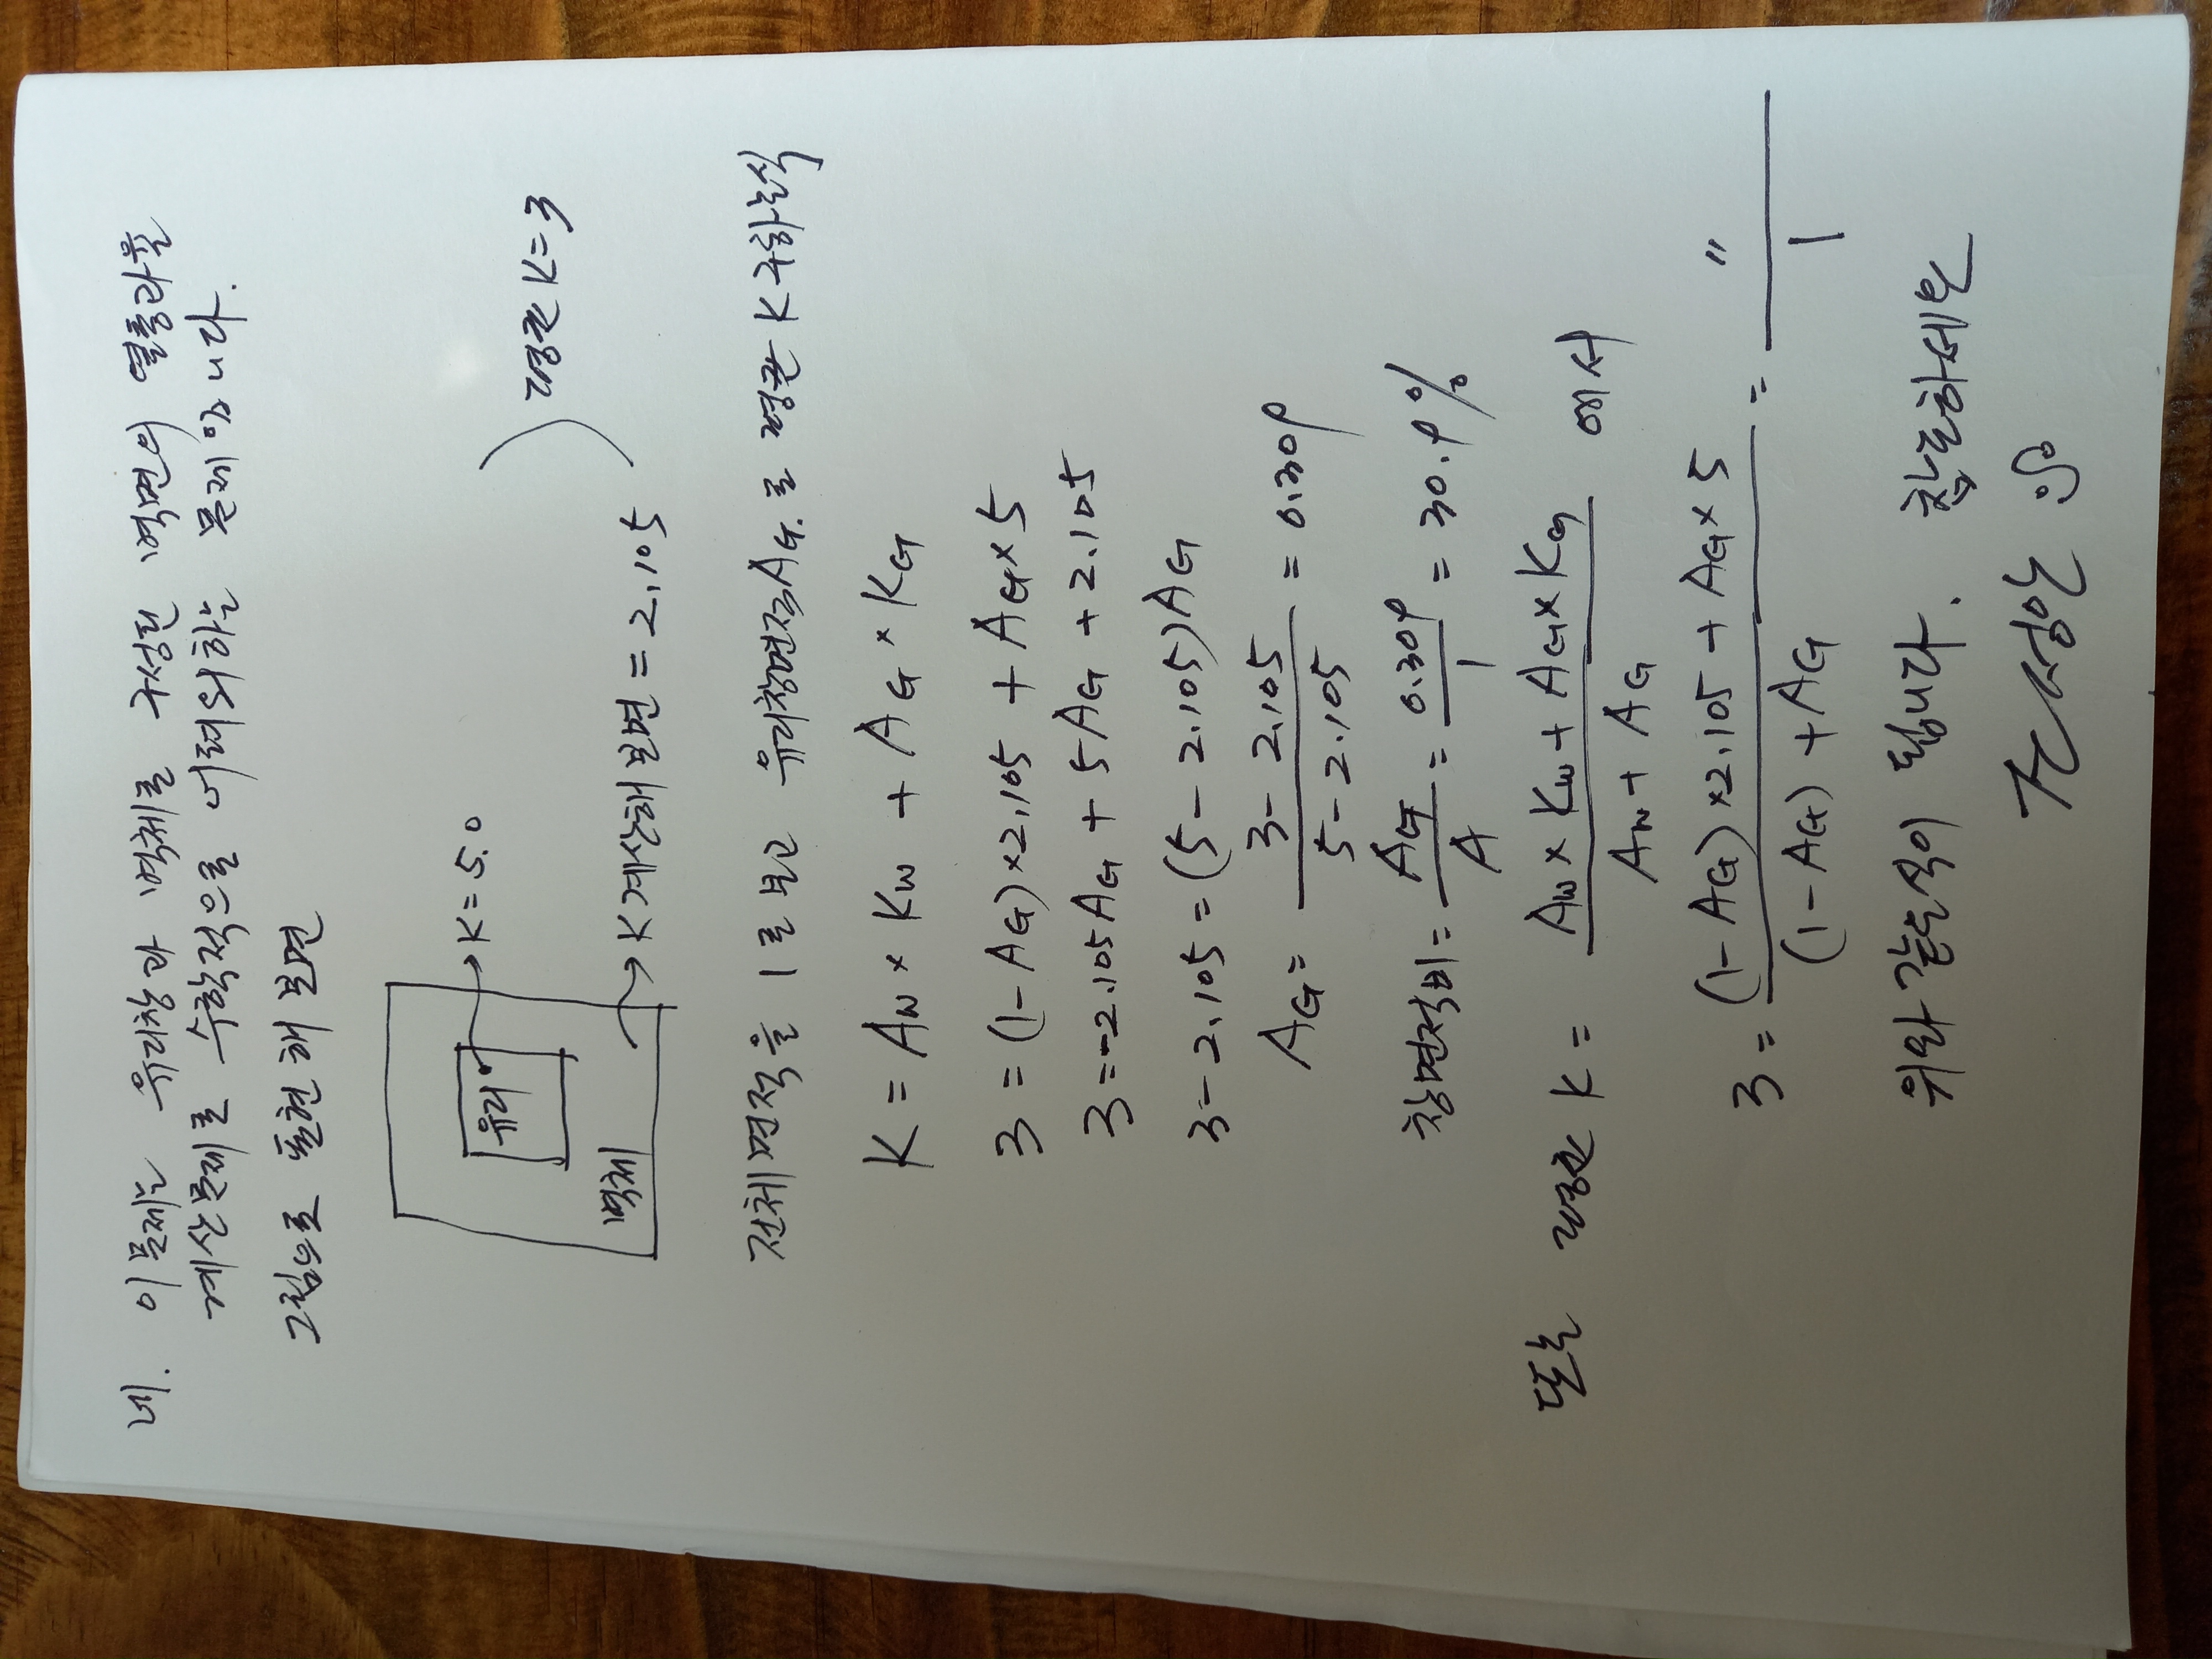 네. 이 문제는 유리창과 벽체로 구성된 벽면의 열통과율
계산문제로 수학적으로 어려워하는 문제입니다.
그림으로 표현해 보면
유리 → K=5.0
벽체 → K계산해보면=2.105
평균K=3
전체면적을 1로보고 유리창면적AG.로 평균K구하는식
K = Aw × Kw + AG × KG
3 = (1-AG)×2.105 + AG×5
3 = -2.105AG + 5AG + 2.105
3-2.105 = (5-2.105)AG
AG = 3-2.105 / 5-2.105 = 0.309
창면적비 = AG / A = 0.309 / 1 = 30.9%
또는 평균 K = Aw × Kw + AG × KG / Aw + AG 에서
3 = (1-AG)×2.105 + AG×5 / (1-AG) + AG = 〃 / 1
위와 같은식이 됩니다. 참고하세요